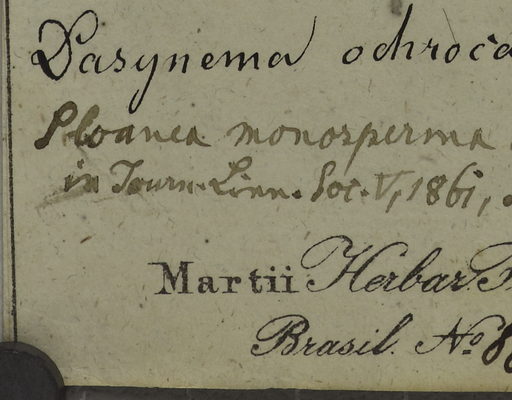 Dasynema ochroca
Sloanea monosperma
in Journ. Linn. Soc. V, 1861,
Martii Herbar. F
Brasil. No. 8